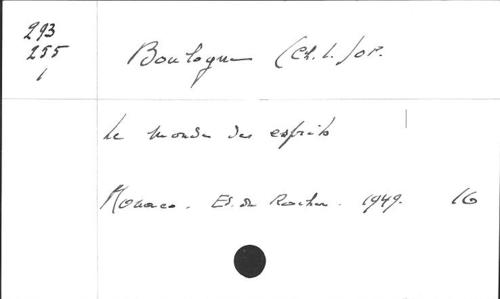 293
255
1
Boulogne (Ch. L.) OP.
Le monde des esprits
Monaco. Ed. du Rocher. 1949. 16